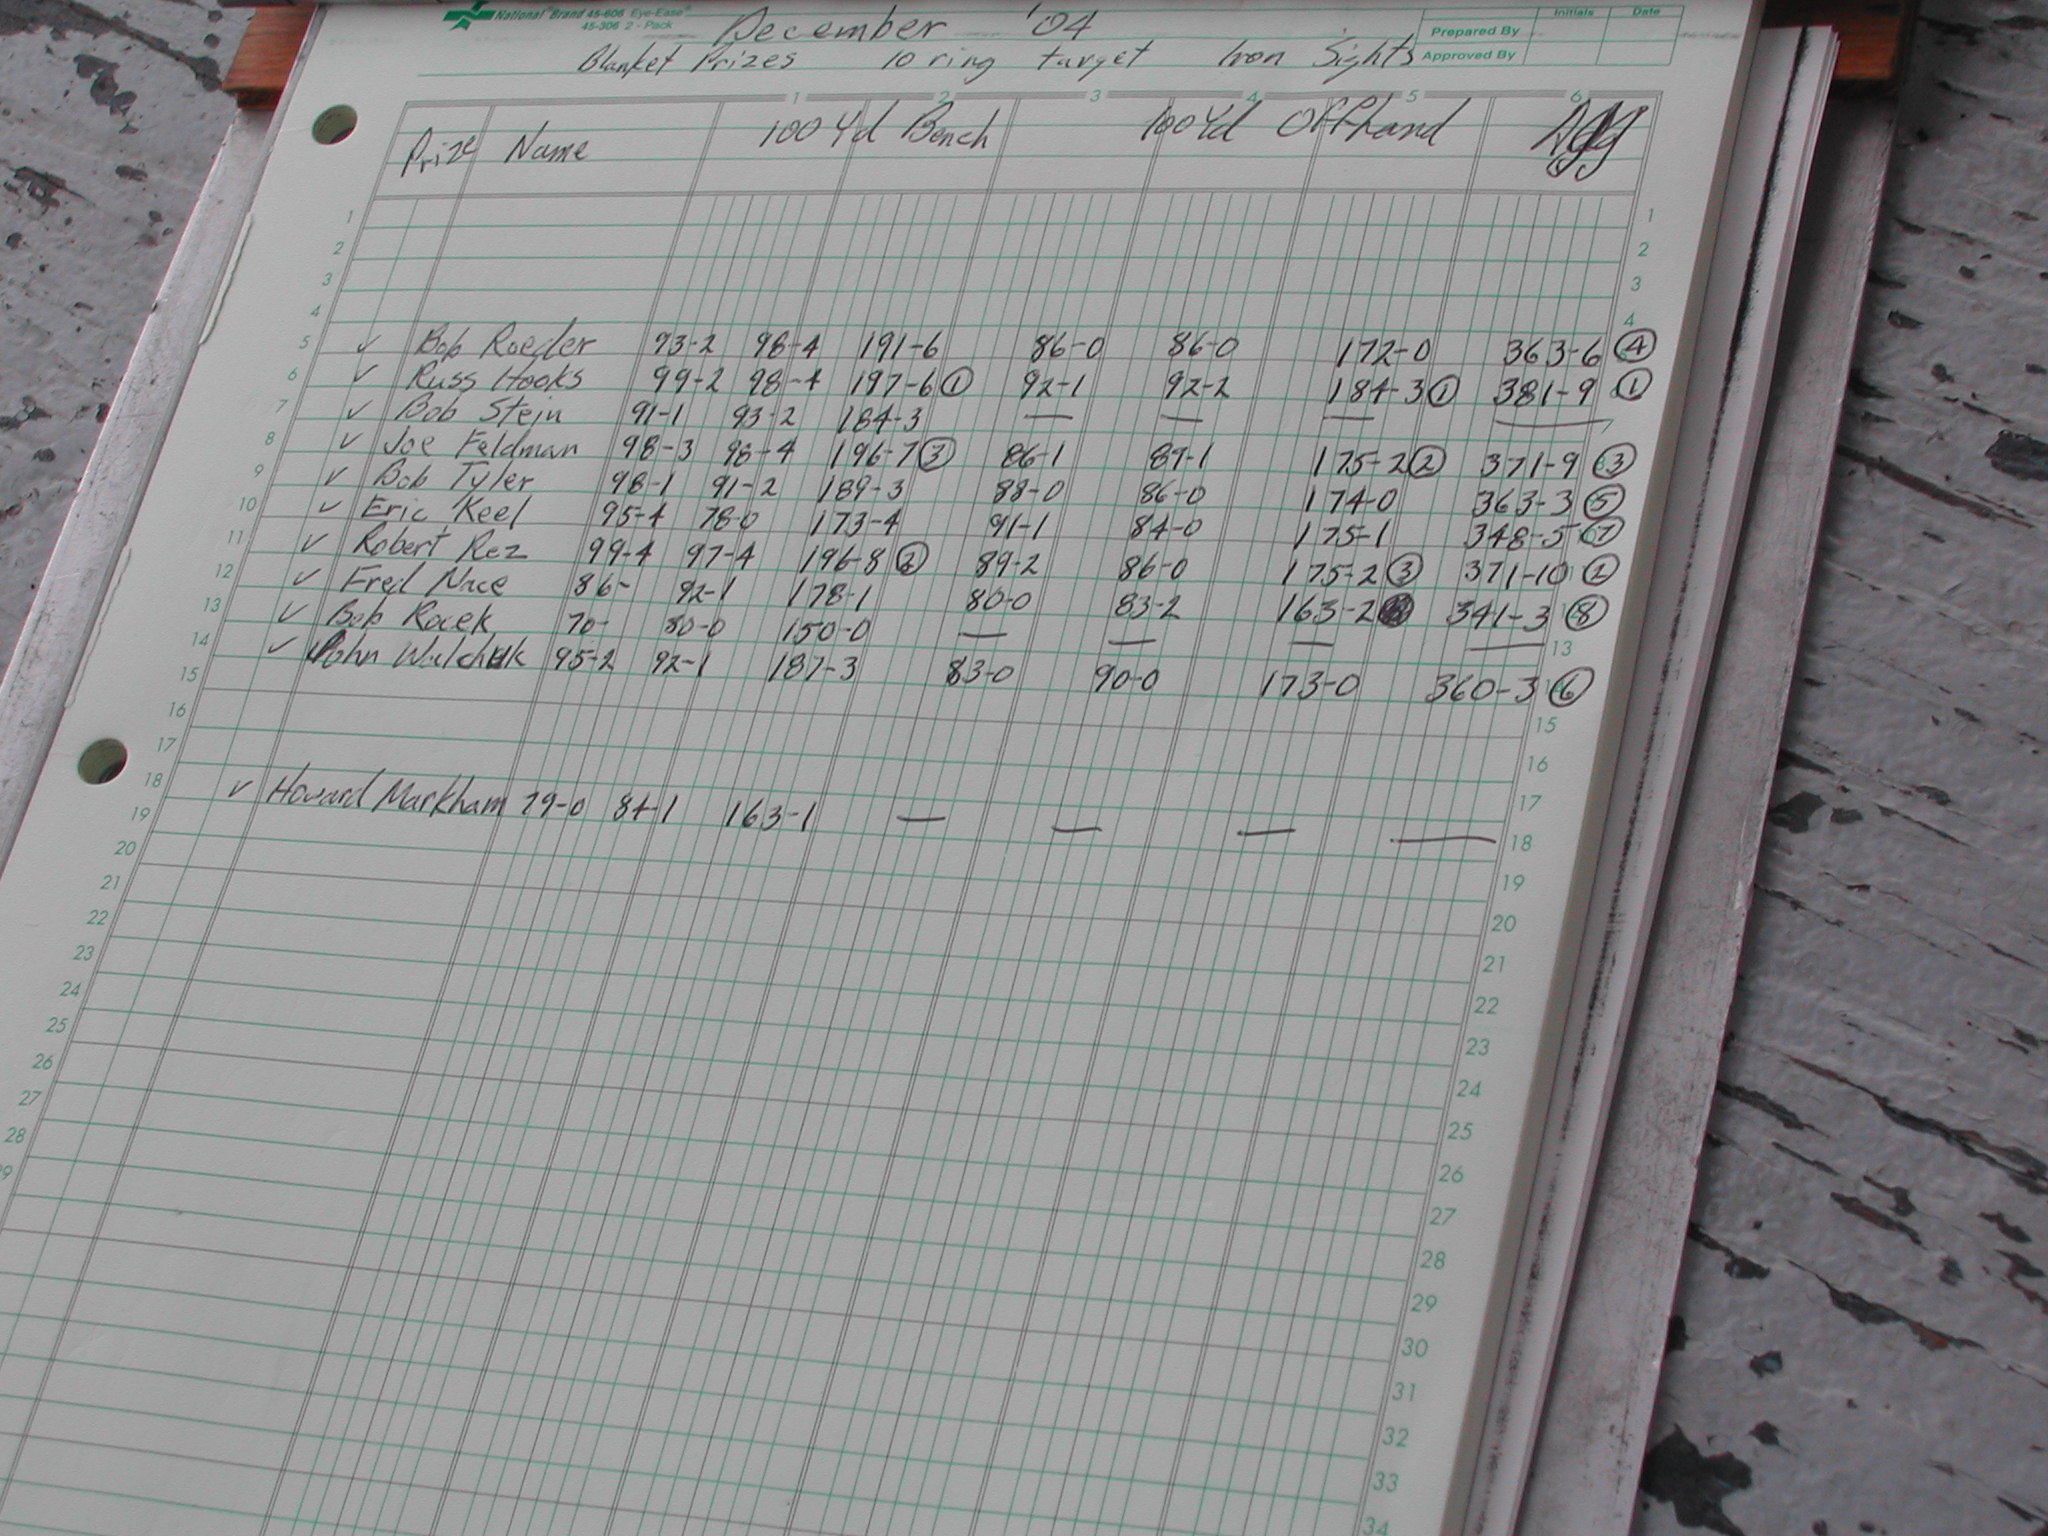 National Brand 45-606 Eye-Ease®
45-306 2-Pack
December '04
Initials Date
Prepared By
Approved By
Blanket Prizes 10 ring target Iron Sights
1 2 3 4 5 6
Prize Name 100 Yd Bench 100 Yd Offhand Agg
1 1
2 2
3 3
4 4
5 ✓ Bob Roeder 93-2 98-4 191-6 86-0 86-0 172-0 363-6 ④
6 ✓ Russ Hooks 99-2 98-4 197-6 ① 92-1 92-2 184-3 ① 381-9 ①
7 ✓ Bob Stein 91-1 93-2 184-3 — — — —
8 ✓ Joe Feldman 98-3 98-4 196-7 ③ 86-1 89-1 175-2 ② 371-9 ③
9 ✓ Bob Tyler 98-1 91-2 189-3 88-0 86-0 174-0 363-3 ⑤
10 ✓ Eric Keel 95-4 78-0 173-4 91-1 84-0 175-1 348-5 ⑦
11 ✓ Robert Rez 99-4 97-4 196-8 ② 89-2 86-0 175-2 ③ 371-10 ②
12 ✓ Fred Nace 86- 92-1 178-1 80-0 83-2 163-2 341-3 ⑧
13 ✓ Bob Rocek 70- 80-0 150-0 — — — — 13
14 ✓ John Walchuk 95-2 92-1 187-3 83-0 90-0 173-0 360-3 ⑥
15 15
16 16
17 17
18 ✓ Howard Markham 79-0 84-1 163-1 — — — — 18
19 19
20 20
21 21
22 22
23 23
24 24
25 25
26 26
27 27
28 28
29
30
31
32
33
34